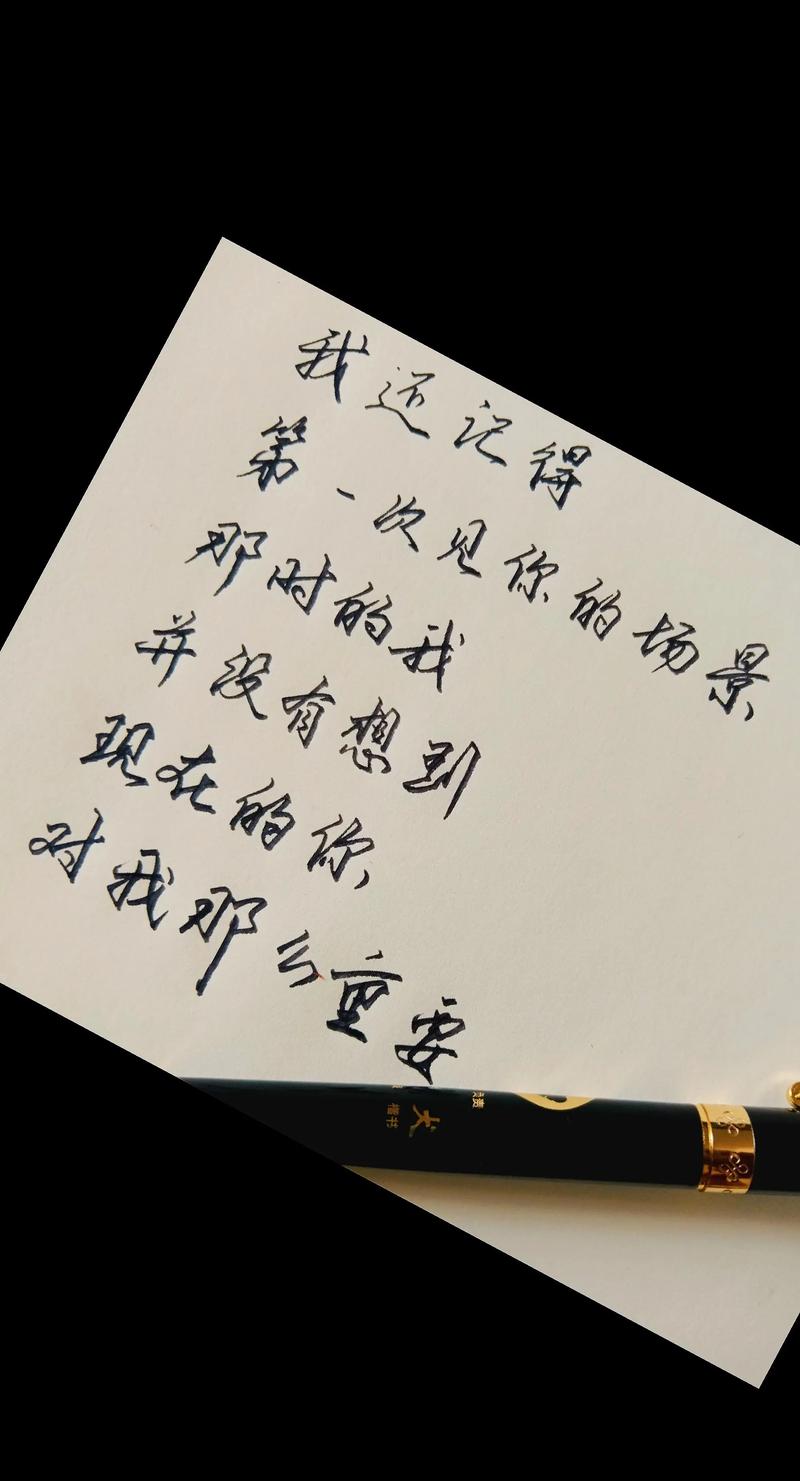 我还记得
第一次见你的场景
那时的我
并没有想到
现在的你
对我那么重要